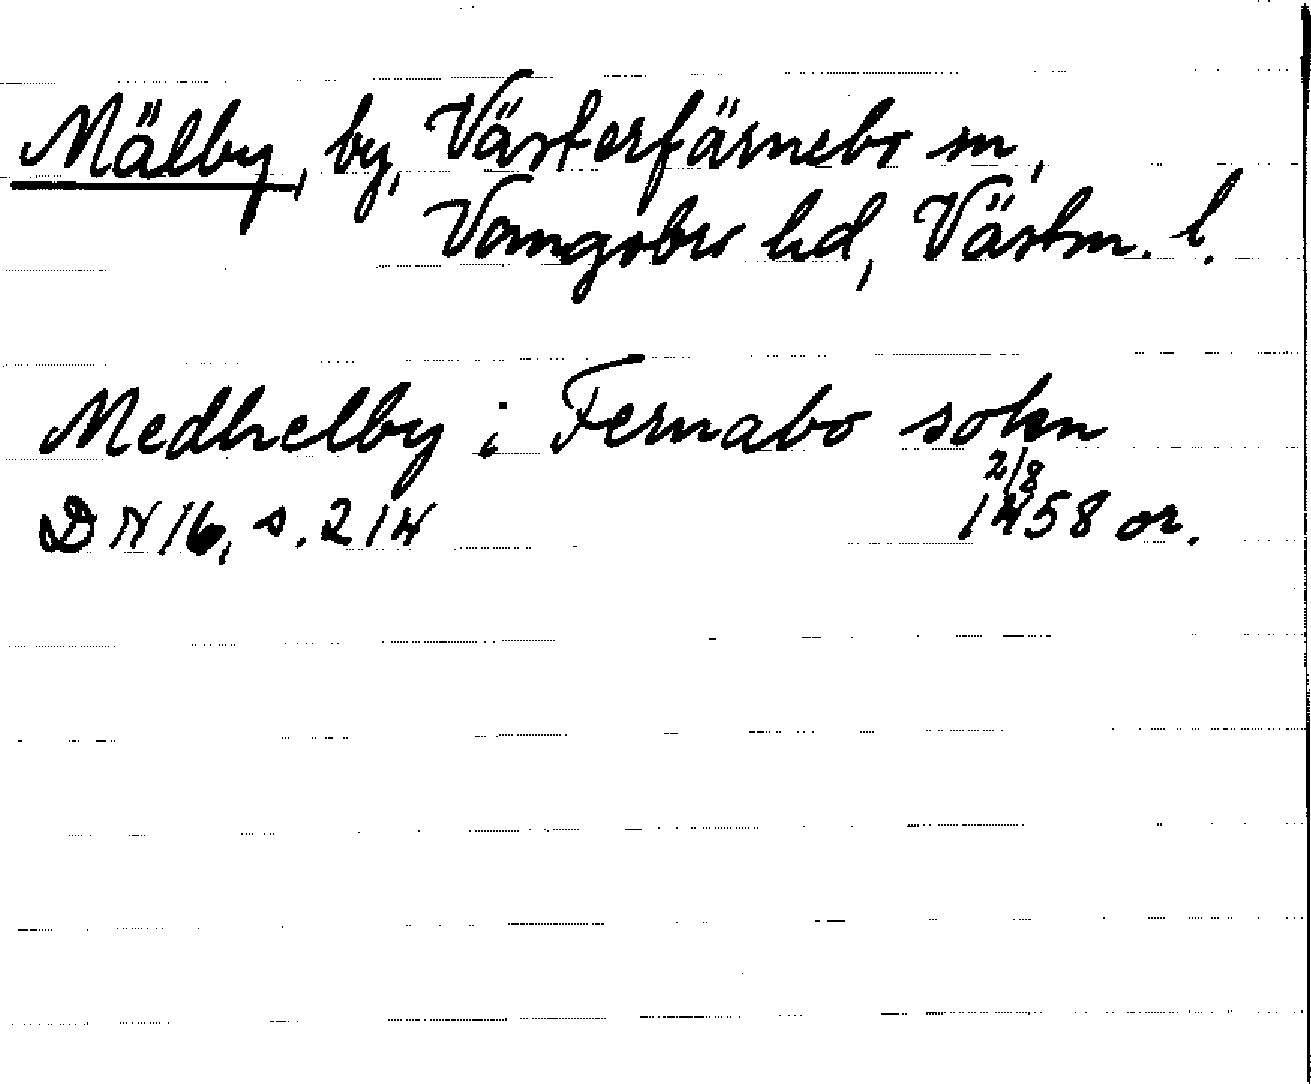 Mälby, by, Västerfärnebo sn,
Vangsbro hd, Västm. l.
Medhelby i Fernabo sokn
2/8
DN 16, s. 214 1458 or.